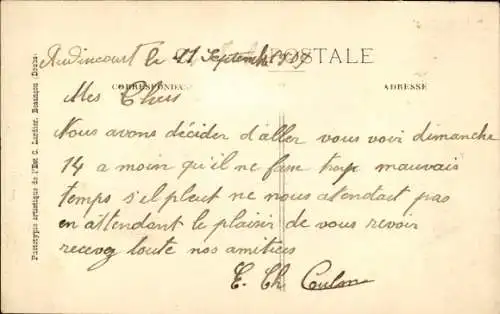 Audincourt le 11 Septembre
CARTE POSTALE
CORRESPONDANCE
ADRESSE
Mes Chers
Nous avons décider d'aller vous voir dimanche
14 a moin qu'il ne fasse trop mauvais
temps s'il pleut ne nous atendait pas
en attendant le plaisir de vous revoir
recevez toute nos amitiees
E. Ch
Phototypie artistique de l'Est C. Lardier, Besançon (Doubs)